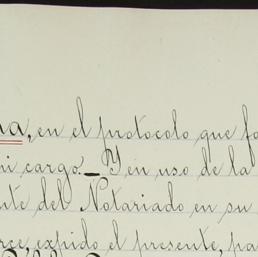 na, en el protocolo que fo
mi cargo._ Y en uso de la
nte del Notariado en su
rce, expido el presente, pa